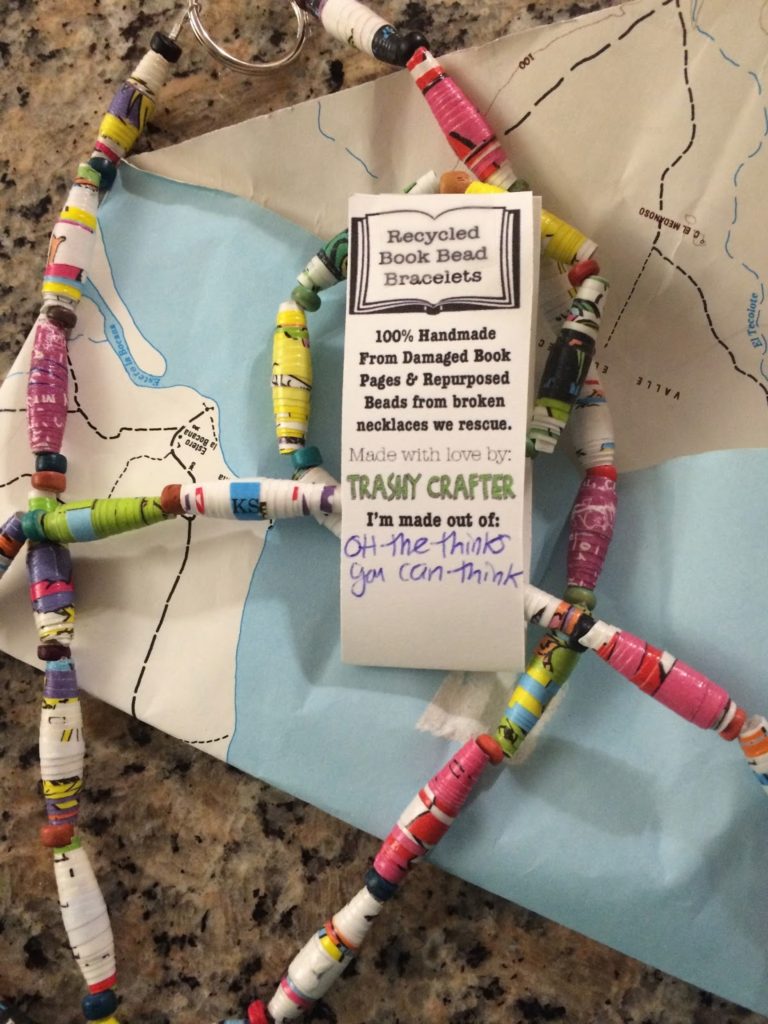 Recycled
Book Bead
Bracelets
100% Handmade
From Damaged Book
Pages & Repurposed
Beads from broken
necklaces we rescue.
Made with love by:
TRASHY CRAFTER
I'm made out of:
OH the thinks
you can think
100
C. EL MEDANOSO
El Tecolote
VALLE
Estero la Bocana
Estero
la Bocana
KS